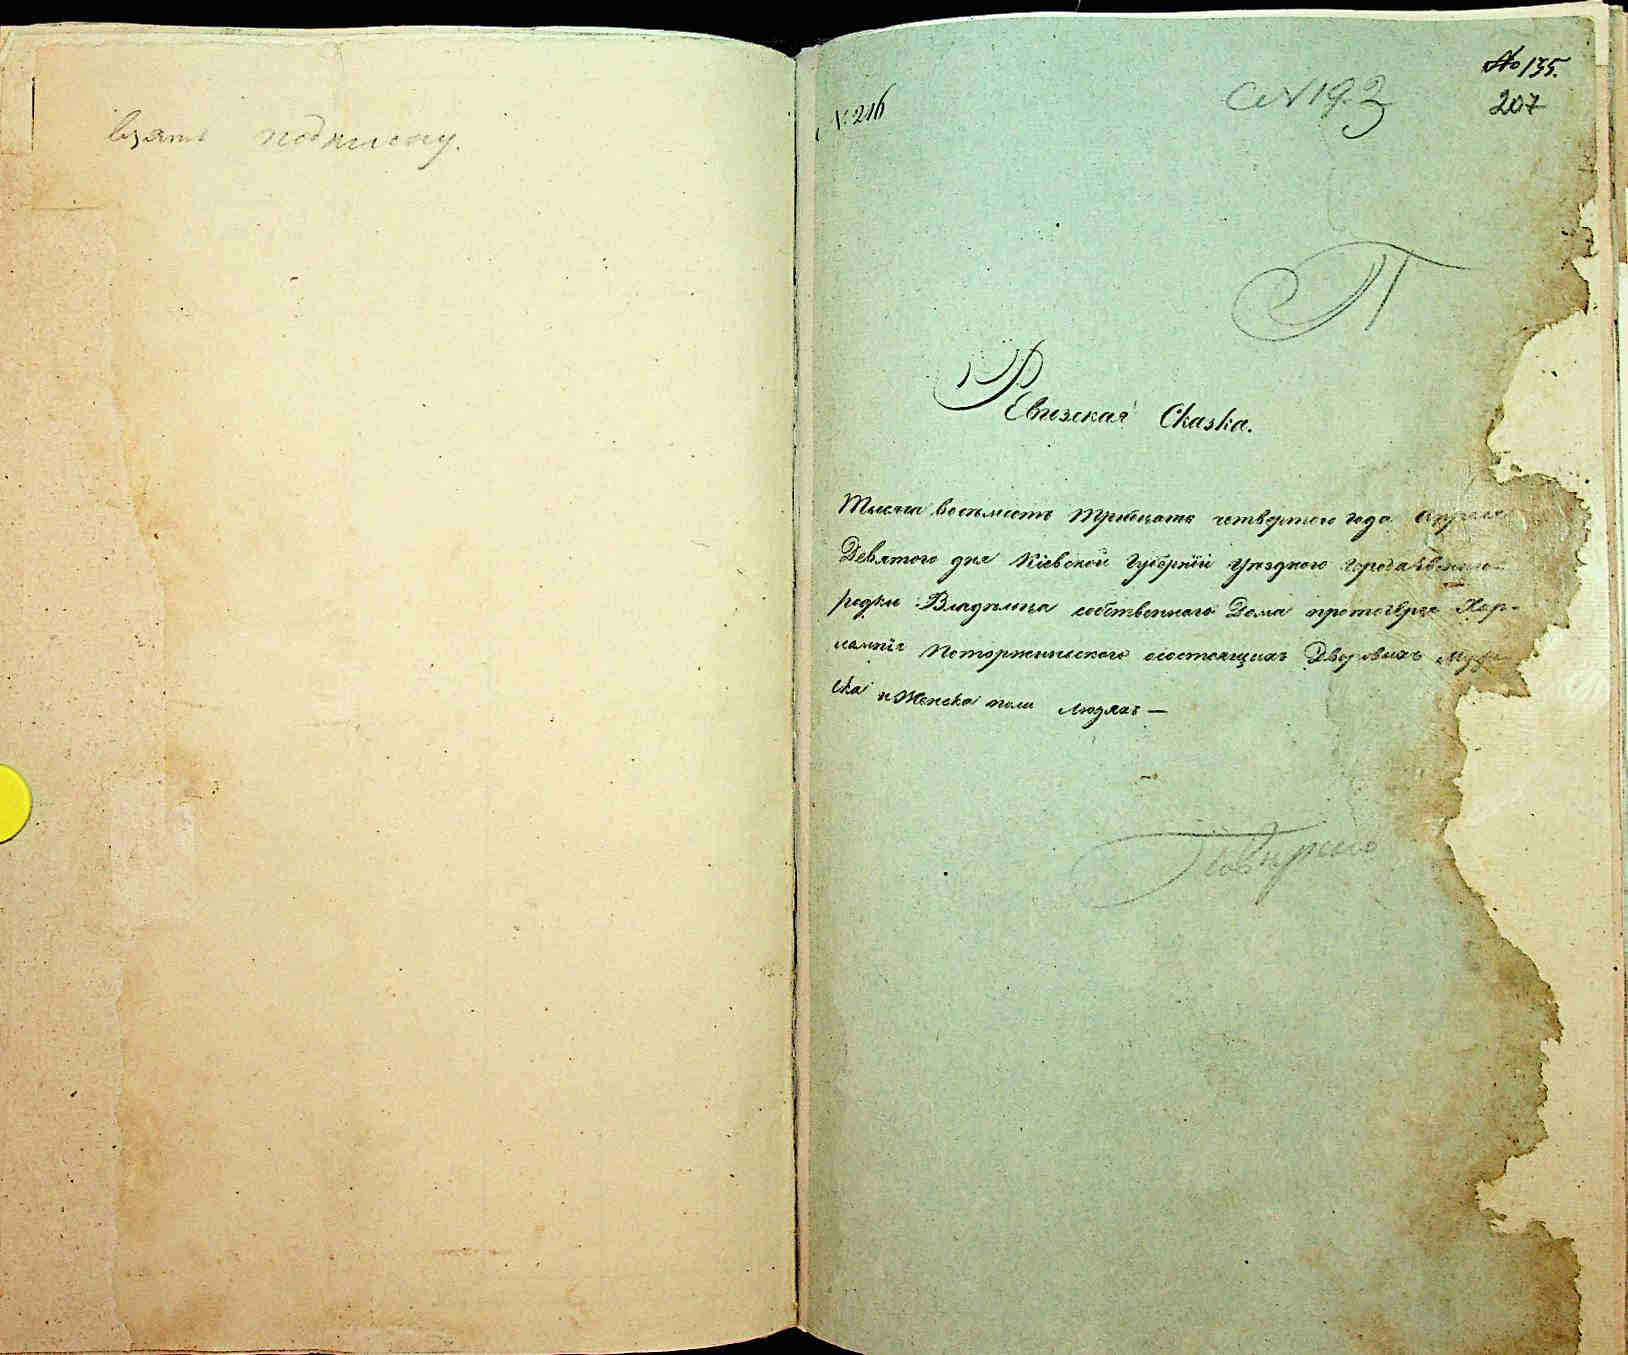 взять подписку.
№ 216
№ 192
№ 135.
207
П
Ревизская Сказка.
Тысяча восемьсотъ тритцать четвертого года апреля
Девятого дня Кіевской Губерніи Уезднаго города Звениго-
родки Владельца собственнаго Дома протоіерея Хар-
лампія Поторжинского о состоящихъ Дворовыхъ Муже-
ска и Женска пола людяхъ —
Поверено